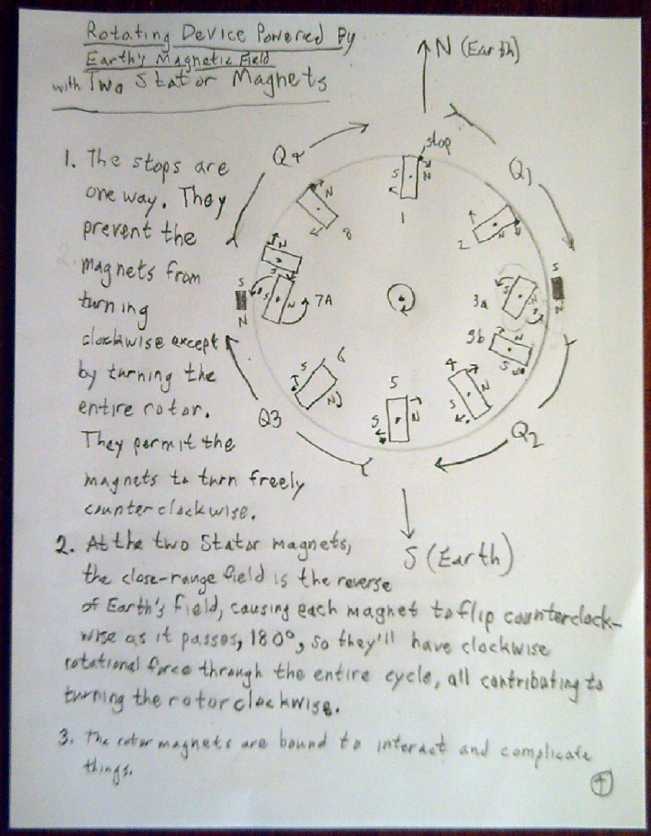 Rotating Device Powered By
Earth's Magnetic Field
with Two Stator Magnets
N (Earth)
1. The stops are
one way. They
prevent the
magnets from
turning
clockwise except
by turning the
entire rotor.
They permit the
magnets to turn freely
counterclockwise.
Q4
stop
Q1
S N
1
N
8
2
N
S
S
N
S N
7A
3a
S
N
3b
N
S
S
N
6
S
N
5
S N
4
N
S
Q3
Q2
S (Earth)
2. At the two Stator magnets,
the close-range field is the reverse
of Earth's field, causing each magnet to flip counterclock-
wise as it passes, 180°, so they'll have clockwise
rotational force through the entire cycle, all contributing to
turning the rotor clockwise.
3. The rotor magnets are bound to interact and complicate
things.